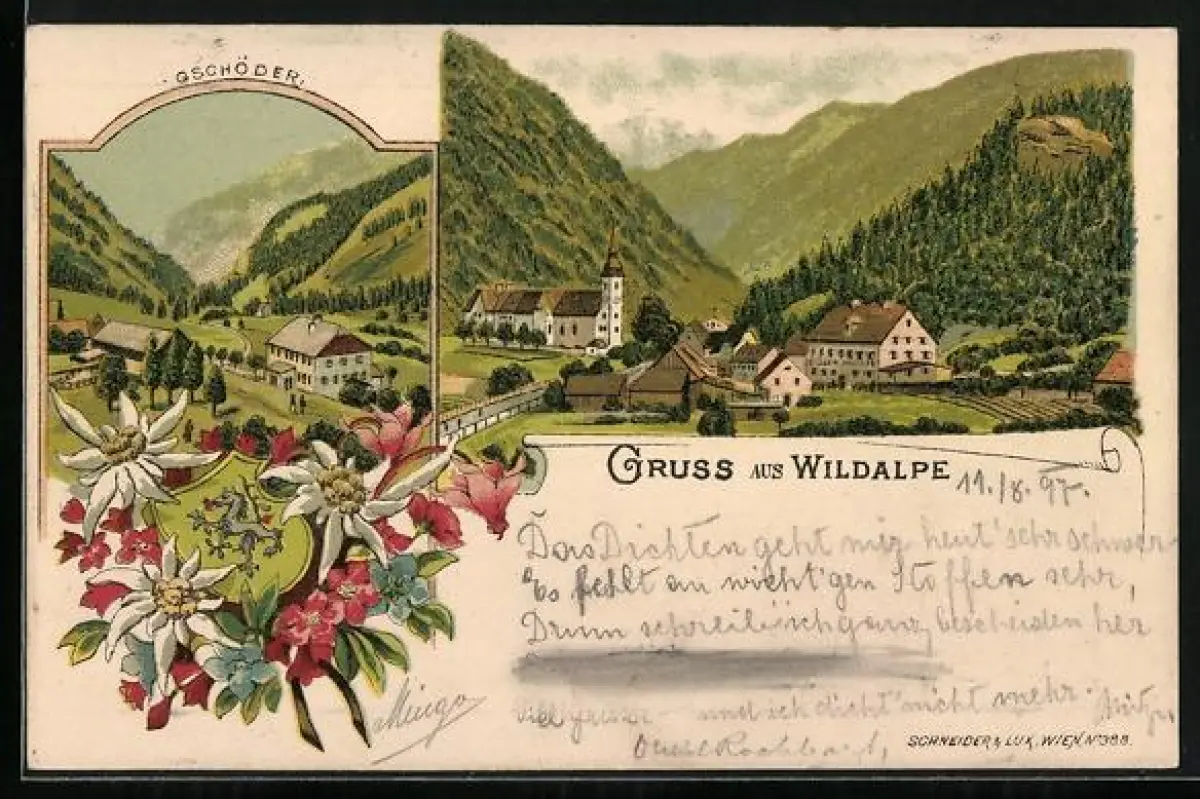 GSCHÖDER.
GRUSS AUS WILDALPE
11./8. 97.
Das Dichten geht mir heut' sehr schwer
Es fehlt an wicht'gen Stoffen sehr,
Drum schreib' ich ganz bescheiden her
und ich dicht' nicht mehr.
Mingo
SCHNEIDER & LUX, WIEN, Nº 388.